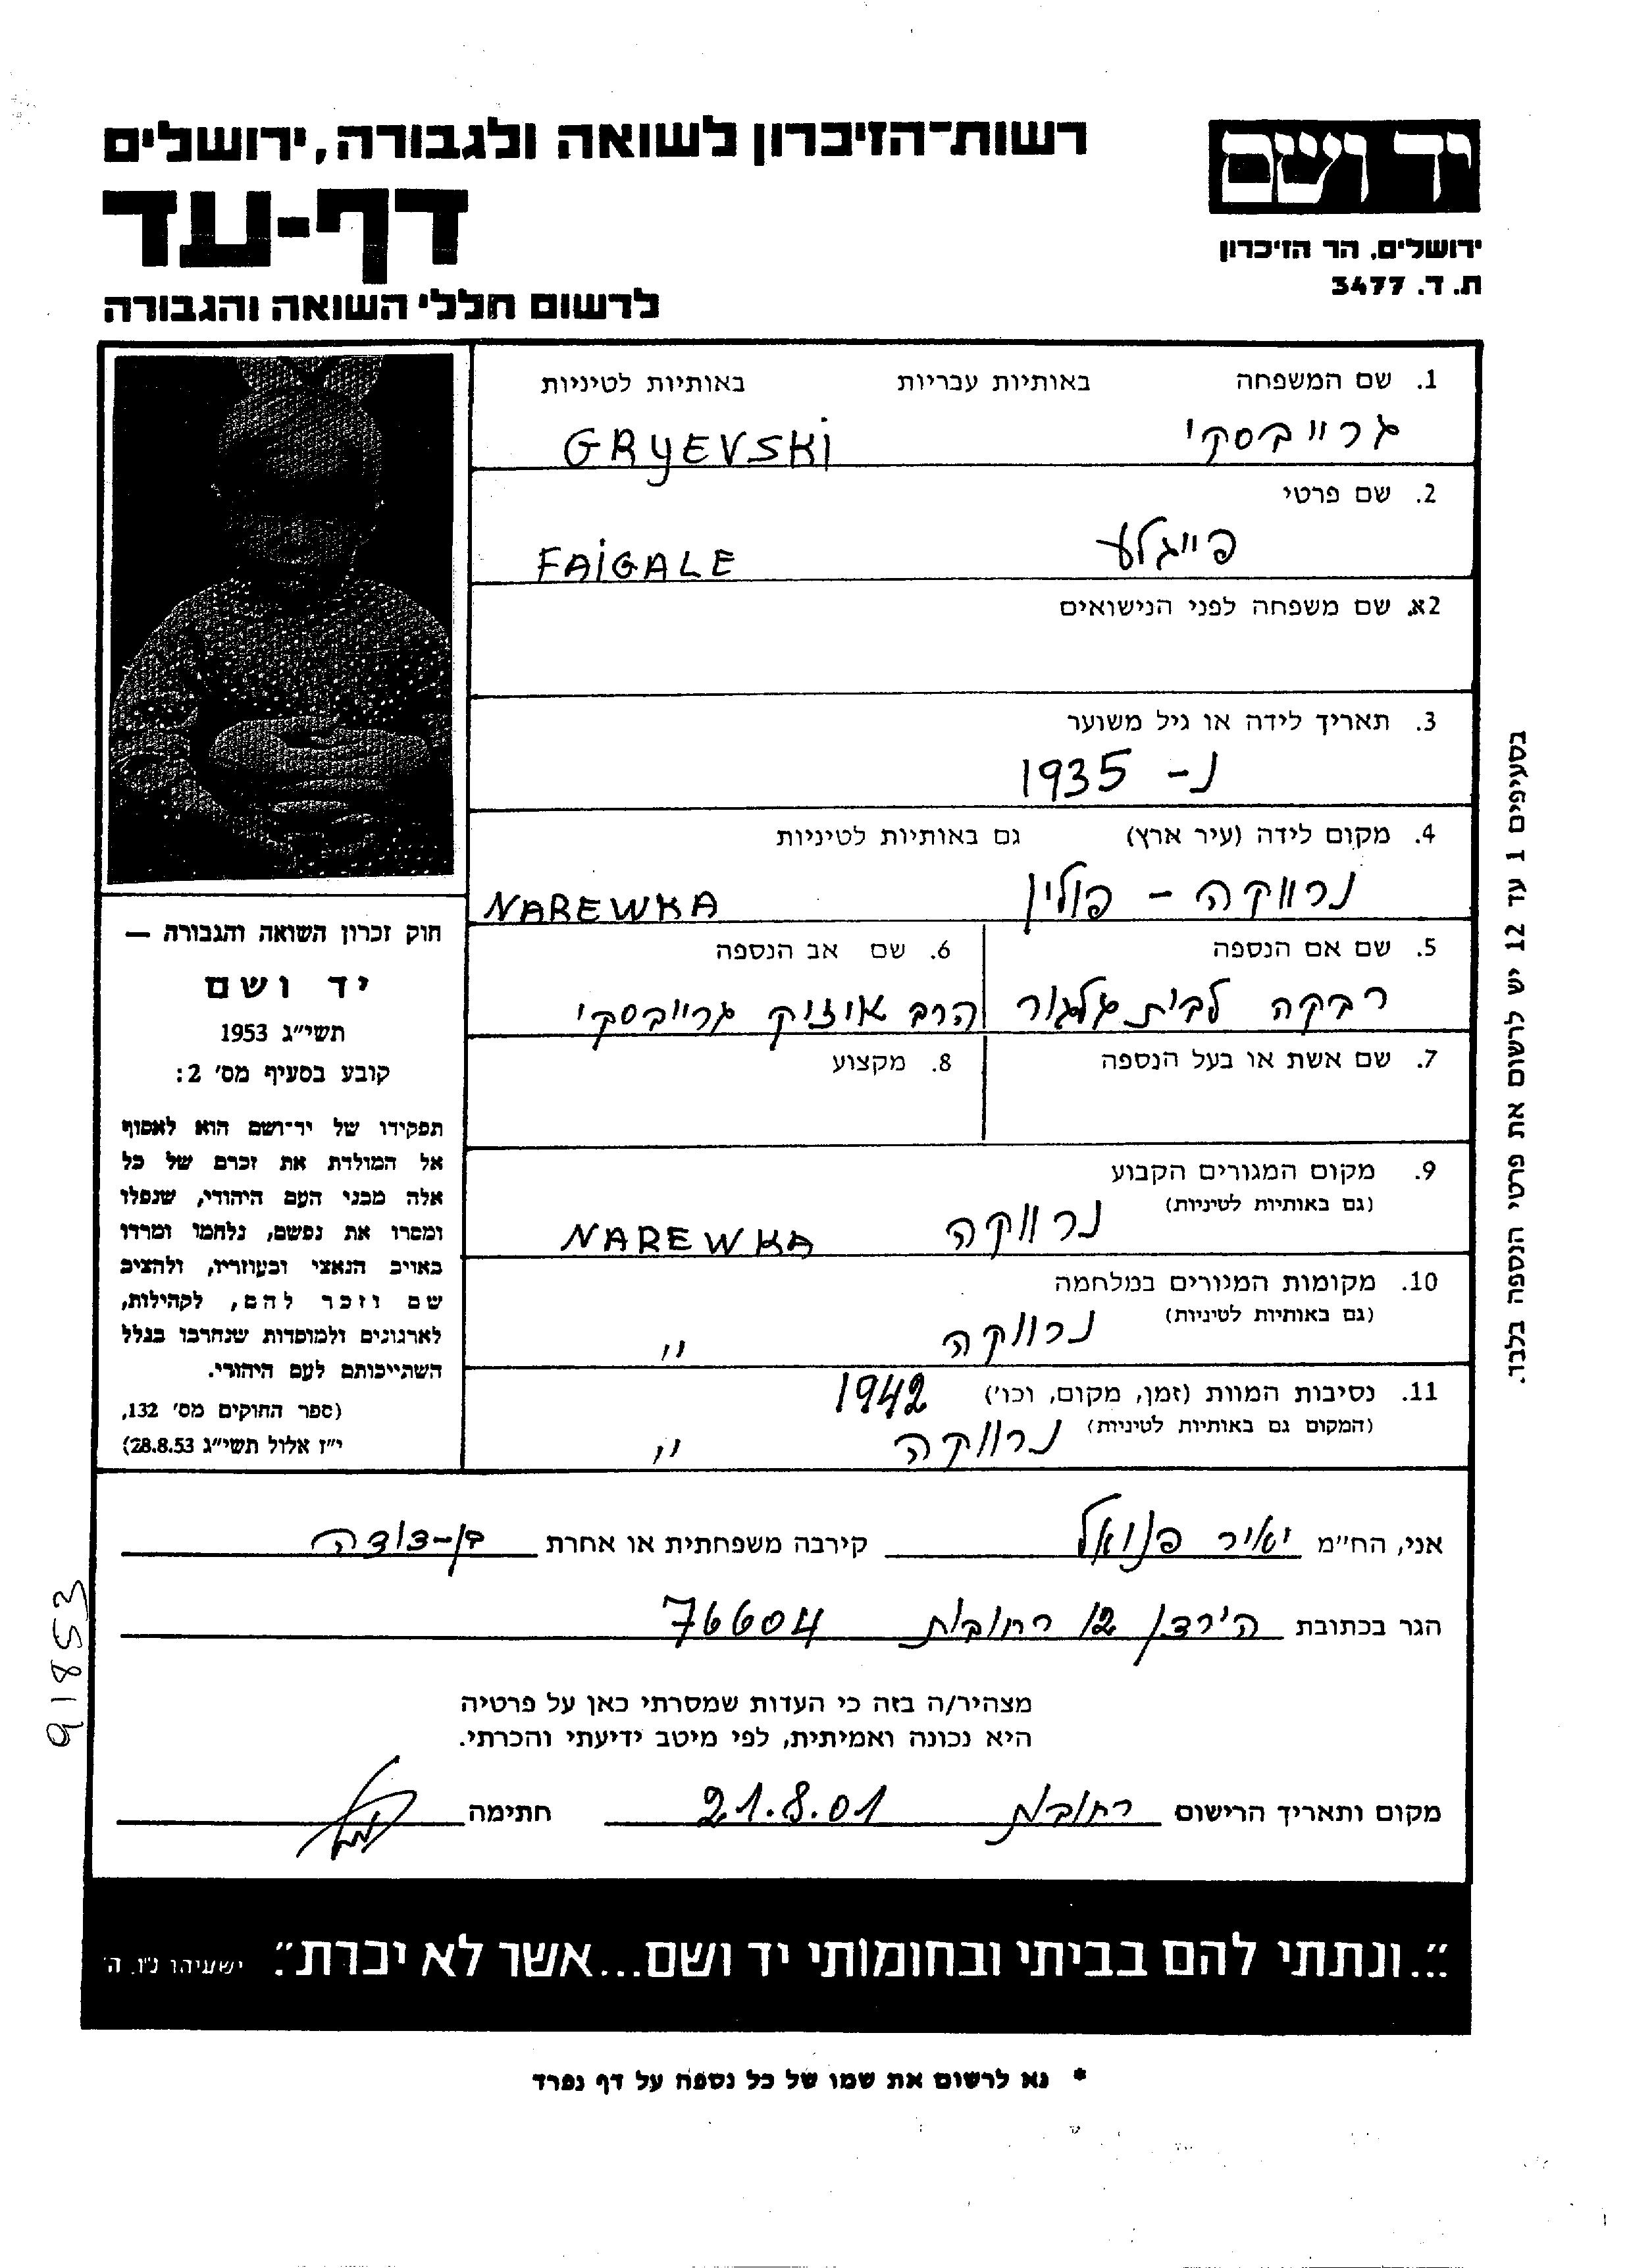 יד ושם
רשות-הזיכרון לשואה ולגבורה, ירושלים
דף-עד
ירושלים, הר הזיכרון
ת. ד. 3477
לרשום חללי השואה והגבורה
1. שם המשפחה באותיות עבריות באותיות לטיניות
גרייבסקי GRYEVSKI
2. שם פרטי
פייגלע FAIGALE
2א. שם משפחה לפני הנישואים
3. תאריך לידה או גיל משוער
נ- 1935
4. מקום לידה (עיר ארץ) גם באותיות לטיניות
נרווקה - פולין NAREWKA
5. שם אם הנספה 6. שם אב הנספה
רבקה לבית גלגור הרב איזיק גרייבסקי
7. שם אשת או בעל הנספה 8. מקצוע
9. מקום המגורים הקבוע
(גם באותיות לטיניות)
נרווקה NAREWKA
10. מקומות המגורים במלחמה
(גם באותיות לטיניות)
נרווקה "
11. נסיבות המוות (זמן, מקום, וכו') 1942
(המקום גם באותיות לטיניות)
נרווקה "
חוק זכרון השואה והגבורה —
יד ושם
תשי"ג 1953
קובע בסעיף מס' 2:
תפקידו של יד-ושם הוא לאסוף
אל המולדת את זכרם של כל
אלה מבני העם היהודי, שנפלו
ומסרו את נפשם, נלחמו ומרדו
באויב הנאצי ובעוזריו, ולהציב
שם וזכר להם, לקהילות,
לארגונים ולמוסדות שנחרבו בגלל
השתייכותם לעם היהודי.
(ספר החוקים מס' 132,
י"ז אלול תשי"ג 28.8.53)
בסעיפים 1 עד 12 יש לרשום את פרטי הנספה בלבד.
אני, הח"מ יאיר פנואל קירבה משפחתית או אחרת בן-דודה
הגר בכתובת הירדן 12 רחובות 76604
מצהיר/ה בזה כי העדות שמסרתי כאן על פרטיה
היא נכונה ואמיתית, לפי מיטב ידיעתי והכרתי.
מקום ותאריך הרישום רחובות 21.8.01 חתימה
91853
"...ונתתי להם בביתי ובחומותי יד ושם...אשר לא יכרת". ישעיהו נ"ו, ה'
* נא לרשום את שמו של כל נספה על דף נפרד